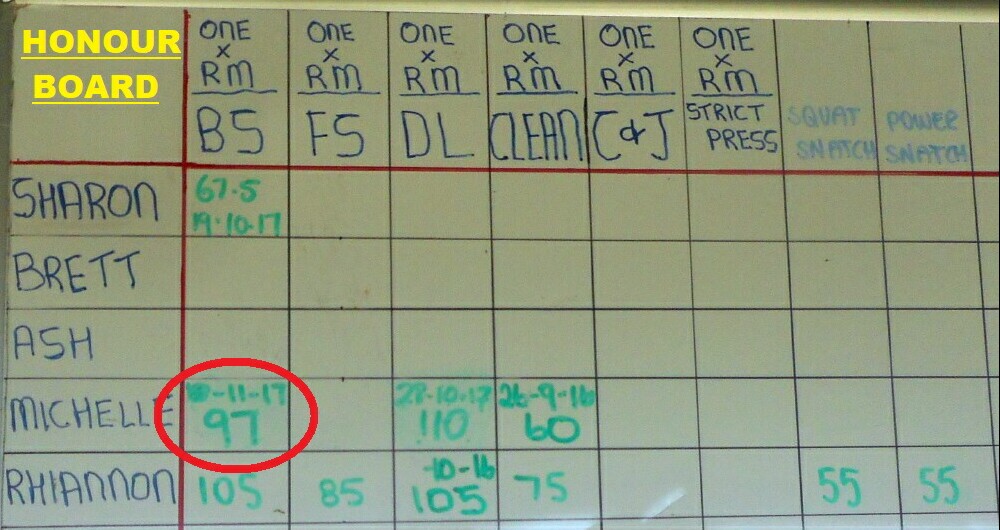 HONOUR
BOARD
ONE ONE ONE ONE ONE ONE
x x x x x x
RM RM RM RM RM RM
BS FS DL CLEAN C&J STRICT PRESS SQUAT SNATCH POWER SNATCH
SHARON 67.5
19.10.17
BRETT
ASH
-11-17 28-10-17 26-9-16
MICHELLE 97 110 60
-10-16
RHIANNON 105 85 105 75 55 55